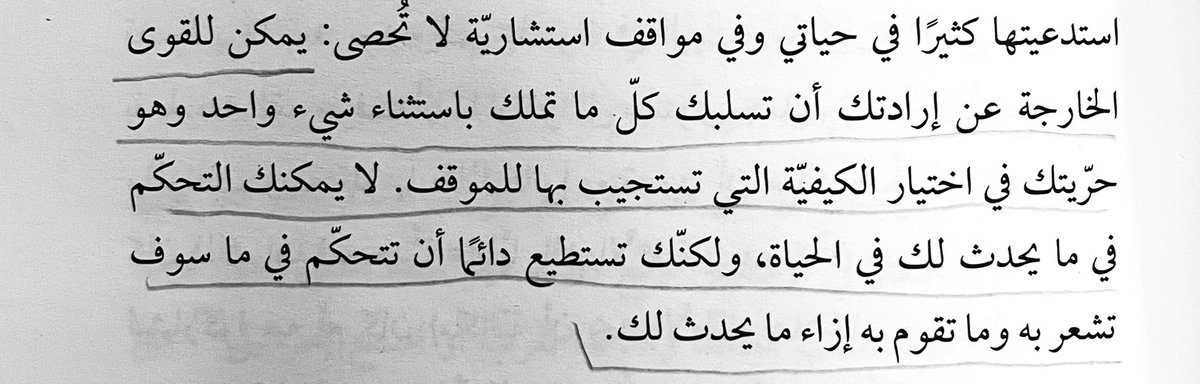 استدعيتها كثيرًا في حياتي وفي مواقف استشاريّة لا تُحصى: يمكن للقوى
الخارجة عن إرادتك أن تسلبك كلّ ما تملك باستثناء شيء واحد وهو
حرّيتك في اختيار الكيفيّة التي تستجيب بها للموقف. لا يمكنك التحكّم
في ما يحدث لك في الحياة، ولكنّك تستطيع دائمًا أن تتحكّم في ما سوف
تشعر به وما تقوم به إزاء ما يحدث لك.